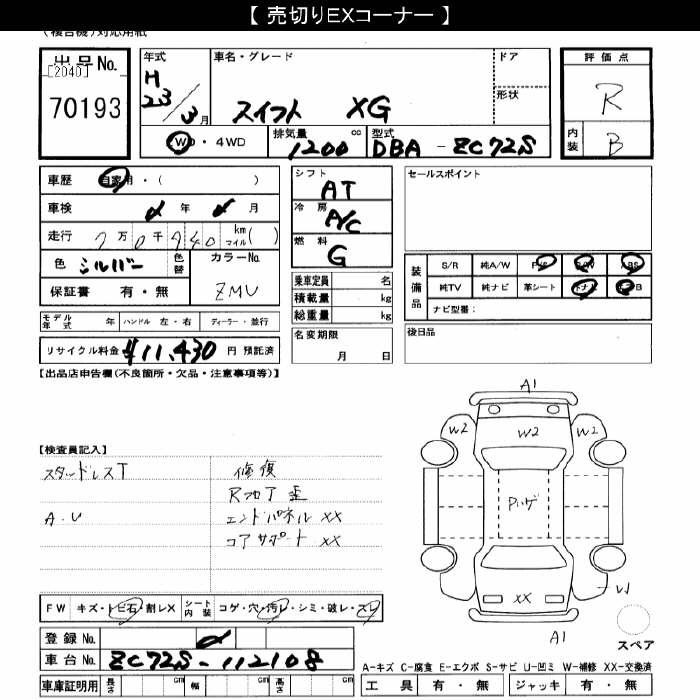 【 売切りEXコーナー 】
(複合機)対応用紙
出品No.
[2040]
70193
年式
H
23/3月
車名・グレード
スイフト XG
ドア
形状
評価点
R
内装 B
2WD・4WD
排気量 1200 cc
型式 DBA - ZC72S
車歴 自家用・( )
車検 年 月
走行 7万0千940 km マイル( )
色 シルバー 色替
カラーNo. ZMU
保証書 有・無
シフト AT
冷房 A/C
燃料 G
乗車定員 名
積載量 kg
総重量 kg
名変期限
月 日
セールスポイント
装備品
S/R 純A/W P/S P/W ABS
純TV 純ナビ 革シート
ナビ型番:
後日品
モデル年式 年 ハンドル 左・右 ディーラー・並行
リサイクル料金 ¥11,430 円 預託済
【出品店申告欄(不良箇所・欠品・注意事項等)】
【検査員記入】
スタッドレスT 修復
Rフロア 歪
A.U エンドパネル XX
コアサポート XX
A1
W2 W2 W2
Pハゲ
XX
W1
A1
スペア
FW キズ・トビ石・割レX シート内装 コゲ・穴・汚レ・シミ・破レ・スレ
登録No.
車台No. ZC72S-112108
車庫証明用 長さ cm 幅 cm 高さ cm
A−キズ C−腐食 E−エクボ S−サビ U−凹ミ W−補修 XX−交換済
工具 有・無 ジャッキ 有・無